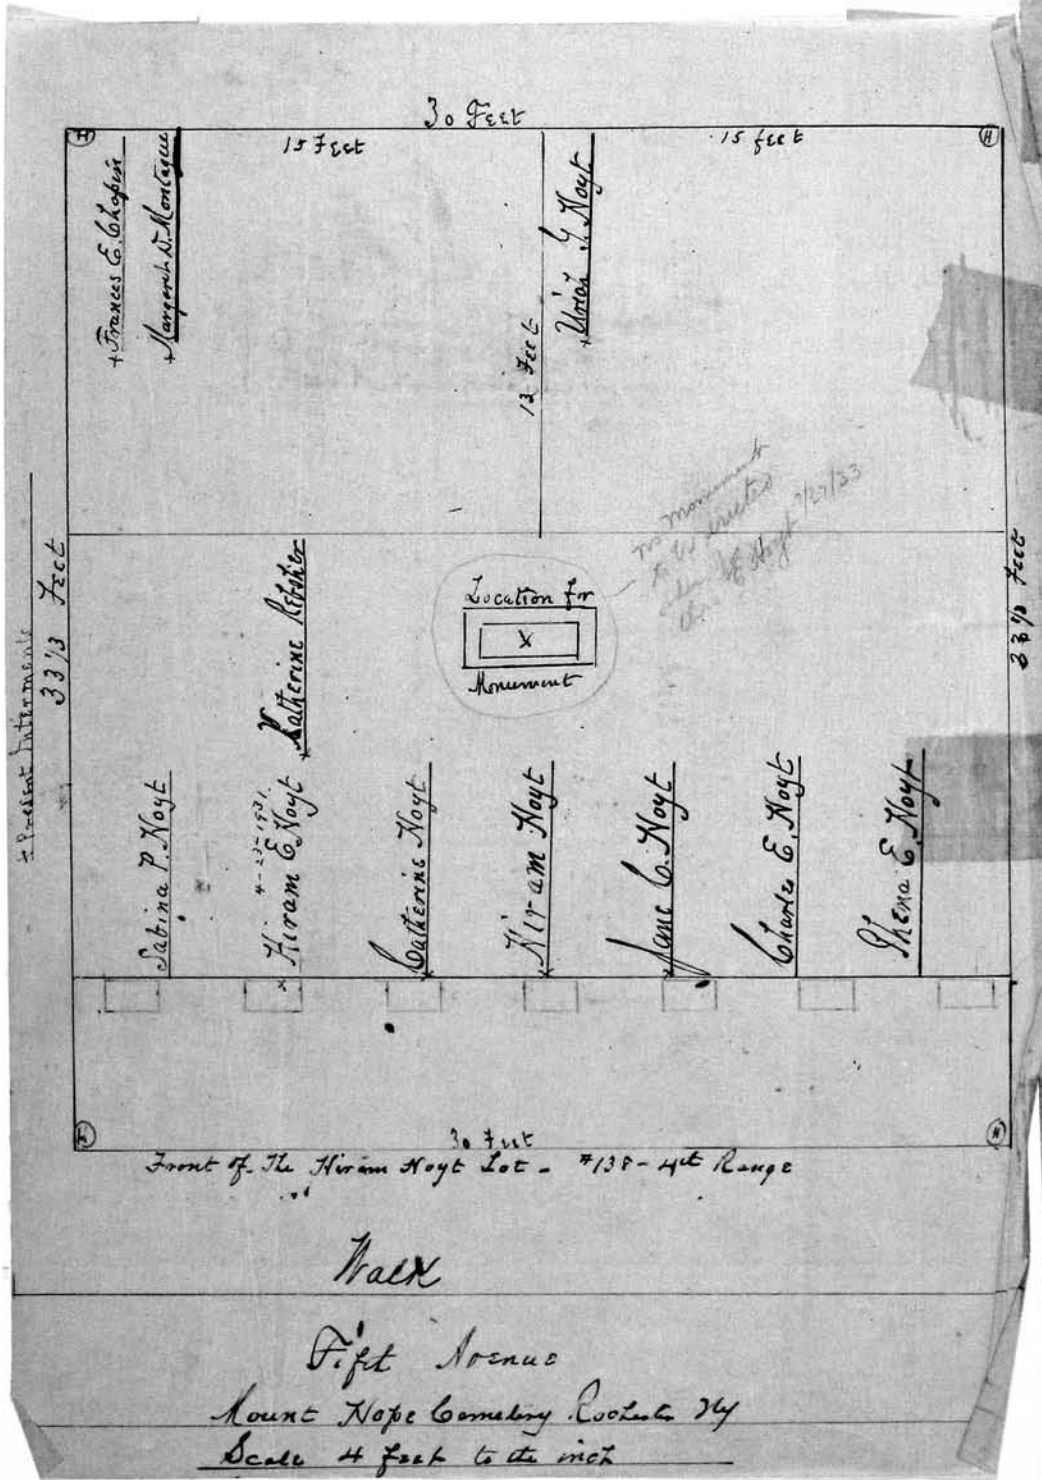 30 Feet
H
15 Feet
15 feet
H
+Frances E. Chapin
+Margaret D. Montague
12 Feet
+Uriah G. Hoyt
33 1/3 Feet
+ Present Interments
33 1/3 Feet
no monument
to be erected
Hoyt 7/27/33
Location for
X
Monument
Katherine
Sabina P. Hoyt
4-23-1931.
x Hiram E. Hoyt
Catherine Hoyt
Hiram Hoyt
Jane C. Hoyt
Charles E. Hoyt
E. Hoyt
H
30 Feet
H
Front of The Hiram Hoyt Lot - #138 - 4th Range
Walk
Fift Avenue
Mount Hope Cemetery Rochester NY
Scale 4 feet to the inch